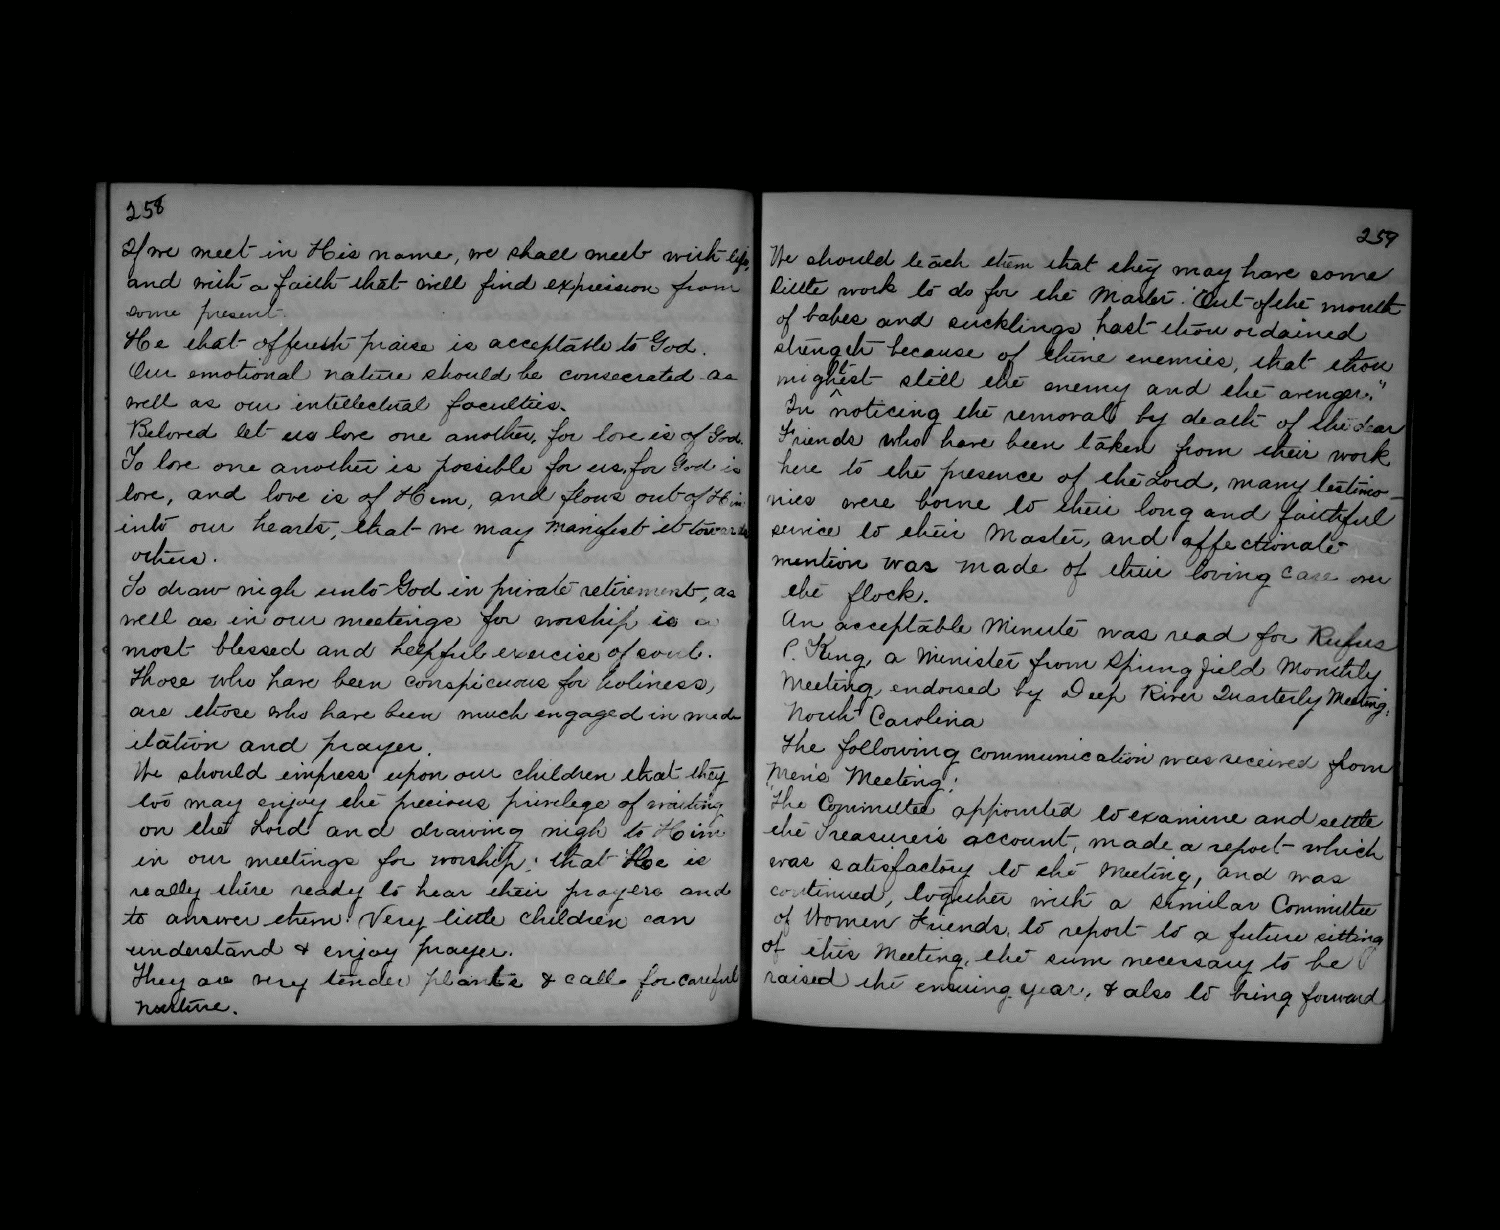 258
If we meet in His name, we shall meet with life,
and with a faith that will find expression from
some present.
He that offereth praise is acceptable to God.
Our emotional nature should be consecrated as
well as our intellectual faculties.
Beloved let us love one another, for love is of God.
To love one another is possible for us, for God is
love, and love is of Him, and flows out of Him
into our hearts, that we may manifest it towards
others.
To draw nigh unto God in private retirement, as
well as in our meetings for worship is a
most blessed and helpful exercise of soul.
Those who have been conspicuous for holiness,
are those who have been much engaged in med-
itation and prayer.
We should impress upon our children that they
too may enjoy the precious privilege of waiting
on the Lord and drawing nigh to Him
in our meetings for worship; that He is
really there ready to hear their prayers and
to answer them. Very little children can
understand & enjoy prayer.
They are very tender plants & call for careful
nurture.
259
We should teach them that they may have some
little work to do for the Master. "Out of the mouth
of babes and sucklings hast thou ordained
strength because of thine enemies, that thou
mightest still the enemy and the avenger."
In noticing the removal by death of the dear
Friends who have been taken from their work
here to the presence of the Lord, many testimo-
nies were borne to their long and faithful
service to their Master, and affectionate
mention was made of their loving care over
the flock.
An acceptable Minute was read for Rufus
P. King, a Minister from Springfield Monthly
Meeting, endorsed by Deep River Quarterly Meeting,
North Carolina
The following communication was received from
Men's Meeting:
"The Committee appointed to examine and settle
the Treasurer's account, made a report which
was satisfactory to the Meeting, and was
continued, together with a similar Committee
of Women Friends, to report to a future sitting
of this Meeting, the sum necessary to be
raised the ensuing year, & also to bring forward